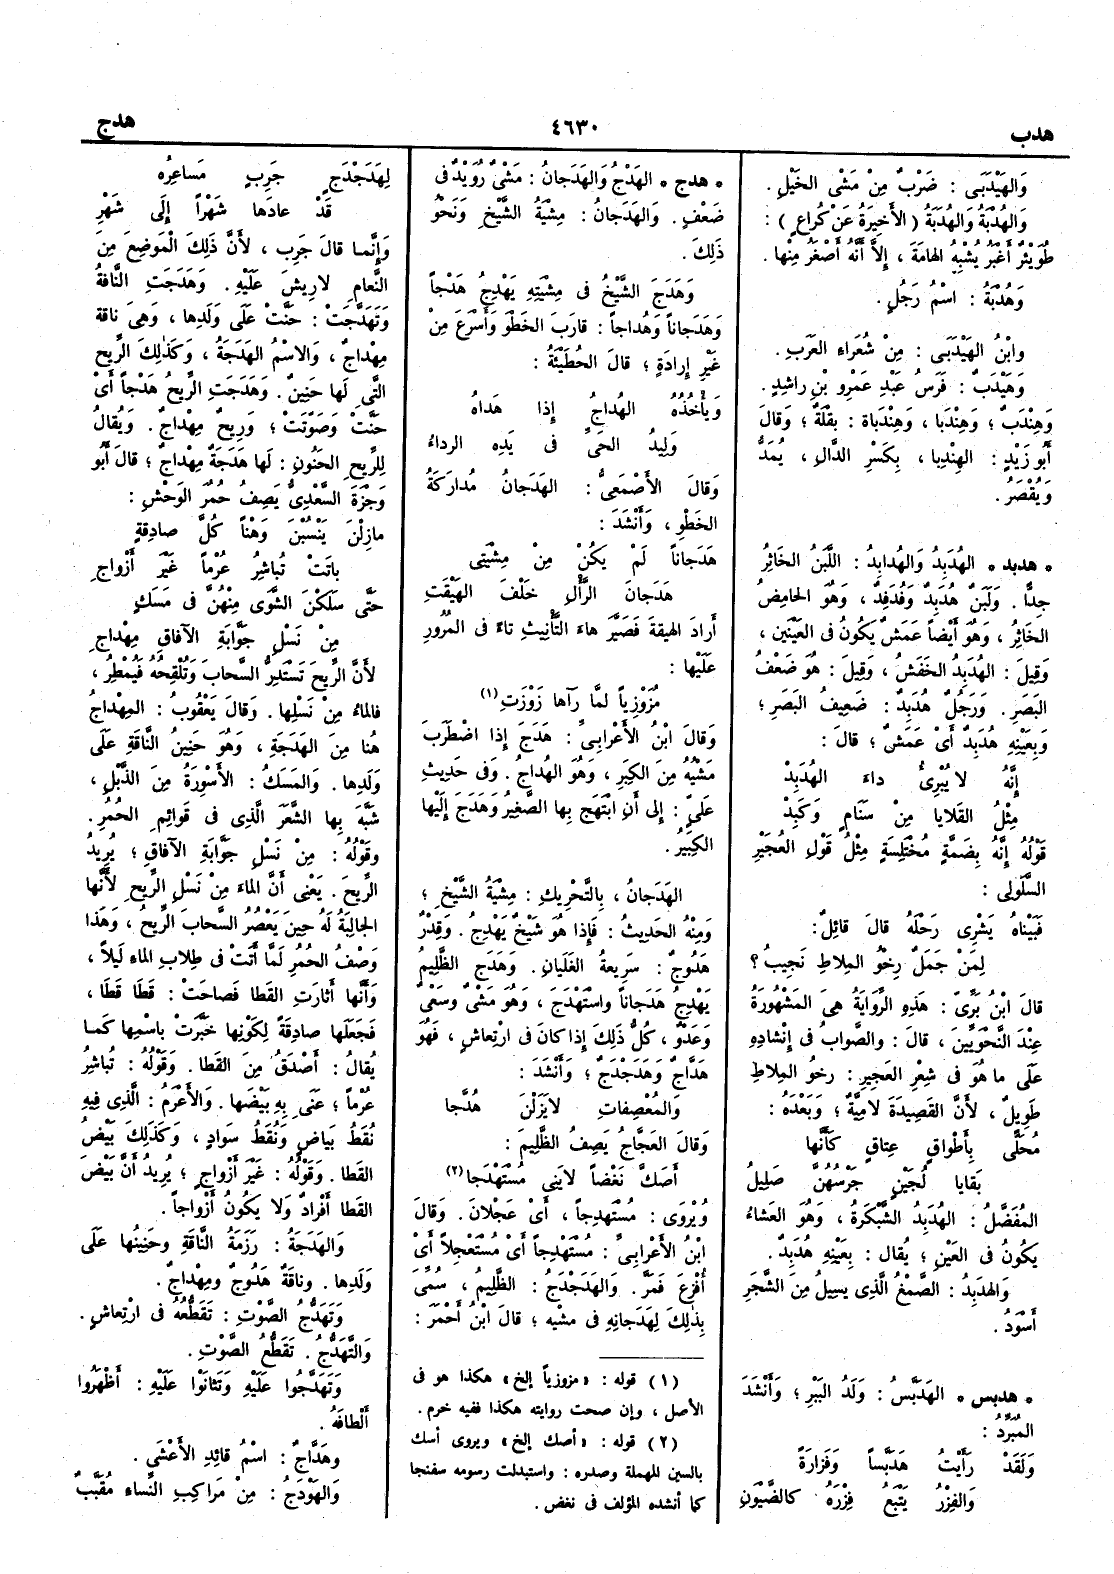 هدب
٤٦٣٠
هدج
وَالهَيْدَبَى : ضَرْبٌ مِنْ مَشْىِ الخَيْلِ .
وَالهُدْبَةُ وَالهُدَبَةُ ( الأَخِيرَةُ عَنْ كُراعٍ ) :
طُوَيْئِرٌ أَغْبَرُ يُشْبِهُ الهامَةَ ، إِلاَّ أَنَّهُ أَصْغَرُ مِنْها .
وَهُدْبَةُ : اسْمُ رَجُلٍ .
وابْنُ الهَيْدَبَى : مِنْ شُعَراءِ العَرَبِ .
وَهَيْدَبٌ : فَرَسُ عَبْدِ عَمْرِو بْنِ راشِدٍ .
وَهِنْدَبٌ ؛ وَهِنْدَبا ، وَهِنْدَباة : بَقْلَةٌ ؛ وَقالَ
أَبُو زَيْدٍ : الهِنْدِبا ، بِكَسْرِ الدَّالِ ، يُمَدُّ
وَيُقْصَرُ .
* هدبد * الهُدَبِدُ وَالهُدابِدُ : اللَّبَنُ الخَاثِرُ
جِدًّا . وَلَبَنٌ هُدَبِدٌ وَفُدَفِدٌ ، وَهُوَ الحامِضُ
الخَاثِرُ ، وَهُوَ أَيْضاً عَمَشٌ يَكُونُ فى العَيْنَينِ ،
وَقِيلَ : الهُدَبِدُ الخَفَشُ ، وَقِيلَ : هُوَ ضَعْفُ
البَصَرِ . وَرَجُلٌ هُدَبِدٌ : ضَعِيفُ البَصَرِ ؛
وَبِعَيْنِهِ هُدَبِدٌ أَىْ عَمَشٌ ؛ قالَ :
إِنَّهُ لا يُبْرِئُ داءَ الهُدَبِدْ
مِثْلُ القَلايا مِنْ سَنَامٍ وَكَبِدْ
قَوْلُهُ إِنَّهُ بِضَمَّةٍ مُخْتَلِسَةٍ مِثْلُ قَوْلِ العُجَيْرِ
السَّلُولِى :
فَبَيْناهُ يَشْرِى رَحْلَهُ قالَ قائِلٌ :
لِمَنْ جَمَلٌ رِخْوُ المِلاطِ نَجِيبُ ؟
قالَ ابْنُ بَرِّىّ : هَذِهِ الرِّوايَةُ هِىَ المَشْهُورَةُ
عِنْدَ النَّحْوِيِّينَ ، قالَ : والصَّوابُ فى إِنْشادِهِ
عَلَى ما هُوَ فى شِعْرِ العُجَيرِ : رخوُ المِلاطِ
طَوِيلُ ، لأَنَّ القَصِيدَةَ لامِيَّةٌ ؛ وَبَعْدَهُ :
مُحَلًّى بِأَطْواقٍ عِتاقٍ كَأَنَّها
بَقايا لُجَيْنٍ جَرْسُهُنَّ صَلِيلُ
المُفَضَّلُ : الهُدَبِدُ الشَّبْكَرَةُ ، وَهُوَ العَشاءُ
يَكُونُ فى العَيْنِ ؛ يُقالُ : بِعَيْنِهِ هُدَبِدٌ .
وَالهدَبِدُ : الصَّمْغُ الَّذِى يَسِيلُ مِنَ الشَّجَرِ
أَسْوَدُ .
* هدبس * الهَدَبَّسُ : وَلَدُ البَبْرِ ؛ وَأَنْشَدَ
المُبَرِّدُ :
وَلَقَدْ رَأَيْتُ هَدَبَّساً وَفَزارَةً
وَالفِزْرُ يَتْبَعُ فِزْرَهُ كالضَّيْوَنِ
* هدج * الهَدْجُ وَالهَدَجانُ : مَشْىٌ رُوَيْدٌ فى
ضَعْفٍ . وَالهَدَجانُ : مِشْيَةُ الشَّيْخِ وَنَحْوُ
ذَلِكَ .
وَهَدَجَ الشَّيْخُ فى مِشْيَتِهِ يَهْدِجُ هَدْجاً
وَهَدَجاناً وَهُداجاً : قارَبَ الخَطْوَ وَأَسْرَعَ مِنْ
غَيْرِ إِرادَةٍ ؛ قالَ الحُطَيْئَةُ :
وَيَأْخُذُهُ الهُداجُ إِذا هَداهُ
وَلِيدُ الحَىِّ فى يَدِهِ الرداءُ
وَقالَ الأَصْمَعىُّ : الهَدَجانُ مُدارَكَةُ
الخَطْوِ ، وَأَنْشَدَ :
هَدَجاناً لَمْ يَكُنْ مِنْ مِشْيَتى
هَدَجانَ الرَّأْلِ خَلْفَ الهَيْقَتِ
أَرادَ الهيقةَ فَصَيَّرَ هاءَ التَّأْنِيثِ تاءً فى المُرُورِ
عَلَيْها :
مُزَوْزِياً لمَّا رَآها زَوْزَتِ (١)
وَقالَ ابْنُ الأَعْرابىِّ : هَدَجَ إِذا اضْطَرَبَ
مَشْيُهُ مِنَ الكِبَرِ ، وَهُوَ الهُداجُ . وَفى حَدِيثِ
عَلىٍّ : إِلى أَنِ ابْتَهَجَ بِها الصَّغِيرُ وَهَدَجَ إِلَيْها
الكَبِيرُ .
الهَدَجانُ ، بِالتَّحْرِيكِ : مِشْيَةُ الشَّيْخِ ؛
وَمِنْهُ الحَدِيثُ : فَإِذا هُوَ شَيْخٌ يَهْدِجُ . وَقِدْرٌ
هَدُوجٌ : سَرِيعَةُ الغَلَيانِ . وَهَدَجَ الظَّلِيمُ
يَهْدِجُ هَدَجاناً واسْتَهْدَجَ ، وَهُوَ مَشْىٌ وسَعْىٌ
وَعَدْوٌ ، كُلُّ ذَلِكَ إِذا كانَ فى ارْتِعاشٍ ، فَهُوَ
هَدَّاجٌ وَهَدَجْدَجٌ ؛ وَأَنْشَدَ :
وَالمُعْصِفاتِ لايَزَلْنَ هُدَّجا
وَقالَ العَجَّاجُ يَصِفُ الظَّلِيمَ :
أَصَكَّ نَغْضاً لايَنِى مُسْتَهْدَجا (٢)
وَيُرْوَى : مُسْتَهدِجاً ، أَىْ عَجْلانَ . وَقالَ
ابْنُ الأَعْرابىِّ : مُسْتَهْدِجاً أَىْ مُسْتَعْجِلاً أَىْ
أُفْزِعَ فَمَرَّ . وَالهَدَجْدَجُ : الظَّلِيمُ ، سُمِّىَ
بِذَلِكَ لِهَدَجانِهِ فى مشْيِهِ ؛ قالَ ابْنُ أَحْمَرَ :
(١) قوله : « مزوزياً إلخ » هكذا هو فى
الأصل ، وإن صحت روايته هكذا ففيه خرم .
(٢) قوله : « أصك إلخ » ويروى أسك
بالسين المهملة وصدره : واستبدلت رسومه سفنجا
كما أنشده المؤلف فى نغض .
لِهَدَجْدَجٍ جَرِبٍ مَساعِرُه
قَدْ عادَها شَهْراً إِلَى شَهْرِ
وَإِنَّما قالَ جَرِبٍ ، لأَنَّ ذَلِكَ الْمَوضِعَ مِنَ
النَّعامِ لارِيشَ عَلَيْهِ . وَهَدَجَتِ النَّاقَةُ
وَتَهَدَّجَتْ : حَنَّتْ عَلَى وَلَدِها ، وَهىَ ناقة
مِهْداجٌ ، وَالاسْمُ الهَدَجَةُ ، وَكَذَلِكَ الرِّيح
الَّتى لَها حَنِينٌ . وَهَدَجَتِ الرِّيحُ هَدْجاً أَىْ
حَنَّتْ وَصَوَّتَتْ ؛ وَرِيحٌ مِهْداجٌ . وَيُقالُ
لِلرِّيحِ الحَنُونِ : لَها هَدَجَةٌ مِهْداجٌ ؛ قالَ أَبُو
وَجْزَةَ السَّعْدِىُّ يَصِفُ حُمُرَ الوَحْشِ :
مازِلْنَ يَنْسُبْنَ وَهْناً كُلَّ صادِقةٍ
باتَتْ تُباشِرُ عُرْماً غَيْرَ أَزْواجِ
حَتَّى سَلَكْنَ الشَّوَى مِنْهُنَّ فى مَسَكٍ
مِنْ نَسْلِ جَوَّابَةِ الآفاقِ مِهْداجِ
لأَنَّ الرِّيحَ تَسْتَدِرُّ السَّحابَ وَتُلْقِحُهُ فَيُمْطِرُ ،
فالماءُ مِنْ نَسْلِها . وَقالَ يَعْقُوبُ : المِهْداجُ
هُنا مِنَ الهَدَجَةِ ، وَهُوَ حَنِينُ النَّاقَةِ عَلَى
وَلَدِها . والمَسَكُ : الأَسْوِرَةُ مِنَ الذَّبْلِ ،
شَبَّهَ بِها الشَّعَرَ الَّذِى فى قَوائِمِ الحُمُرِ .
وَقَوْلُهُ : مِنْ نَسْلِ جَوَّابَةِ الآفاقِ ؛ يُرِيدُ
الرِّيحَ . يَعْنِى أَنَّ الماءَ مِنْ نَسْلِ الرِّيحِ لأَنَّها
الجالِبَةُ لَهُ حِينَ يَعْصُرُ السَّحابَ الرِّيحُ ، وَهَذا
وَصْفُ الحُمُرِ لَمَّا أَتَتْ فى طِلابِ الماءِ لَيلاً ،
وَأَنَّها أَثارَتِ القَطا فَصاحَتْ : قَطَا قَطَا ،
فَجَعَلَها صادِقَةً لِكَوْنِها خَبَّرَتْ بِاسْمِها كَما
يُقالُ : أَصْدَقُ مِنَ القَطا . وَقَوْلُهُ : تُباشِرُ
عُرْماً ؛ عَنَى بِهِ بَيْضَها . وَالأَعْرَمُ : الَّذِى فِيهِ
نُقَطُ بَياضٍ وَنُقَطُ سَوادٍ ، وَكَذَلِكَ بَيْضُ
القَطا . وَقَوْلُهُ : غَيْرَ أَزْواجٍ ؛ يُرِيدُ أَنَّ بَيْضَ
القَطا أَفْرادٌ وَلا يَكُونُ أَزْواجاً .
وَالهَدَجَةُ : رَزَمَةُ النَّاقَةِ وَحَنِينُها عَلَى
وَلَدِها . وناقَةٌ هَدُوجٌ ومِهْداجٌ .
وَتَهَدُّجُ الصَّوْتِ : تَقَطُّعُهُ فى ارْتِعاشٍ .
وَالتَّهَدُّجُ . تَقَطُّعُ الصَّوْتِ .
وَتَهَدَّجُوا عَلَيْهِ وَتَثانَوْا عَلَيْهِ : أَظْهَرُوا
أَلْطافَهُ .
وَهَدَّاجٌ : اسْمُ قائِدِ الأَعْشَى .
وَالهَوْدَجُ : مِنْ مَراكِبِ النِّساءِ مُقَبَّبٌ